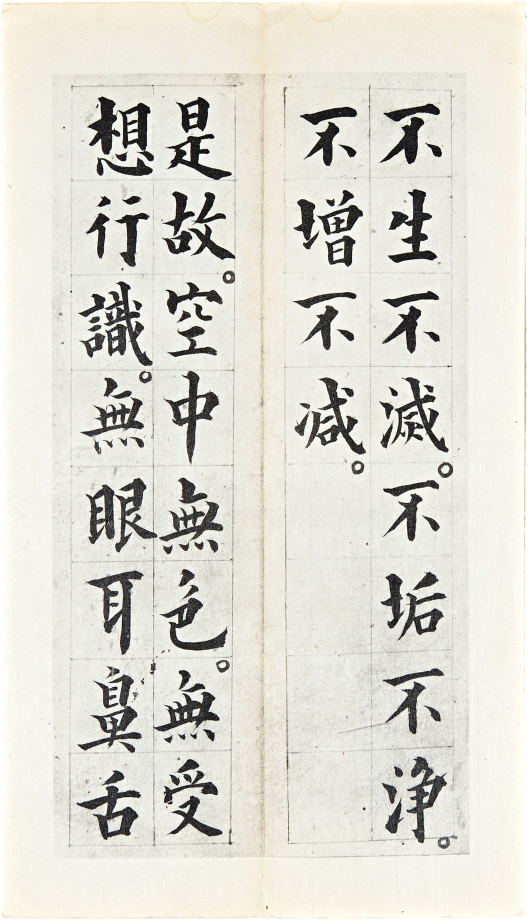 不生不滅。不垢不淨。
不增不減。
是故。空中無色。無受
想行識。無眼耳鼻舌